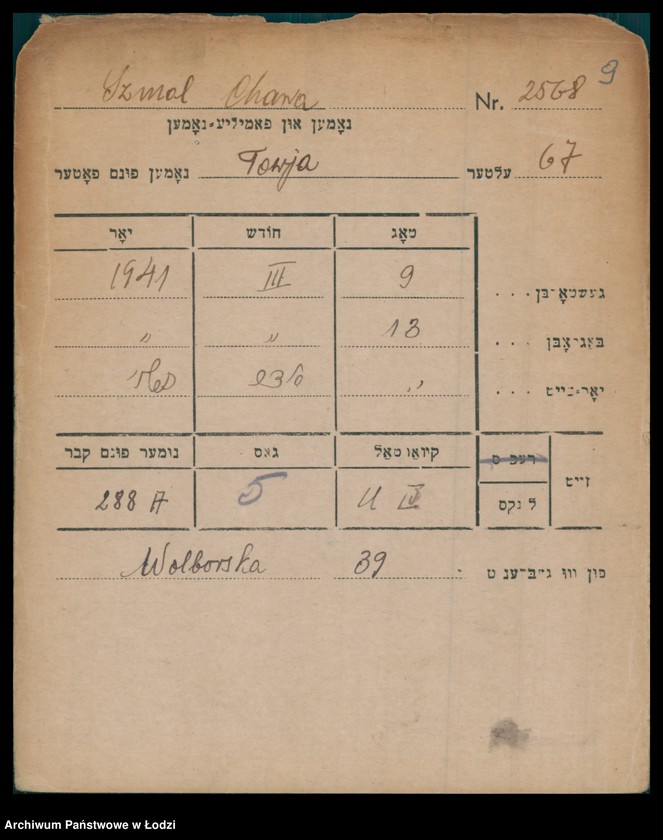 9
Szmol Chawa Nr. 2568
נאָמען און פאַמיליע-נאָמען
נאָמען פונם פאָטער Towja עלטער 67
טאָג חודש יאָר
געשטאָרבן . . . 9 III 1941
באַגראָבן . . . 13 " "
יאָר-צייט . . . "
זייט רעכטס קוואַרטאַל גאַס נומער פונם קבר
לינקס U IV 5 288 A
פון וואו געבּרענגט Wolborska 39
Archiwum Państwowe w Łodzi